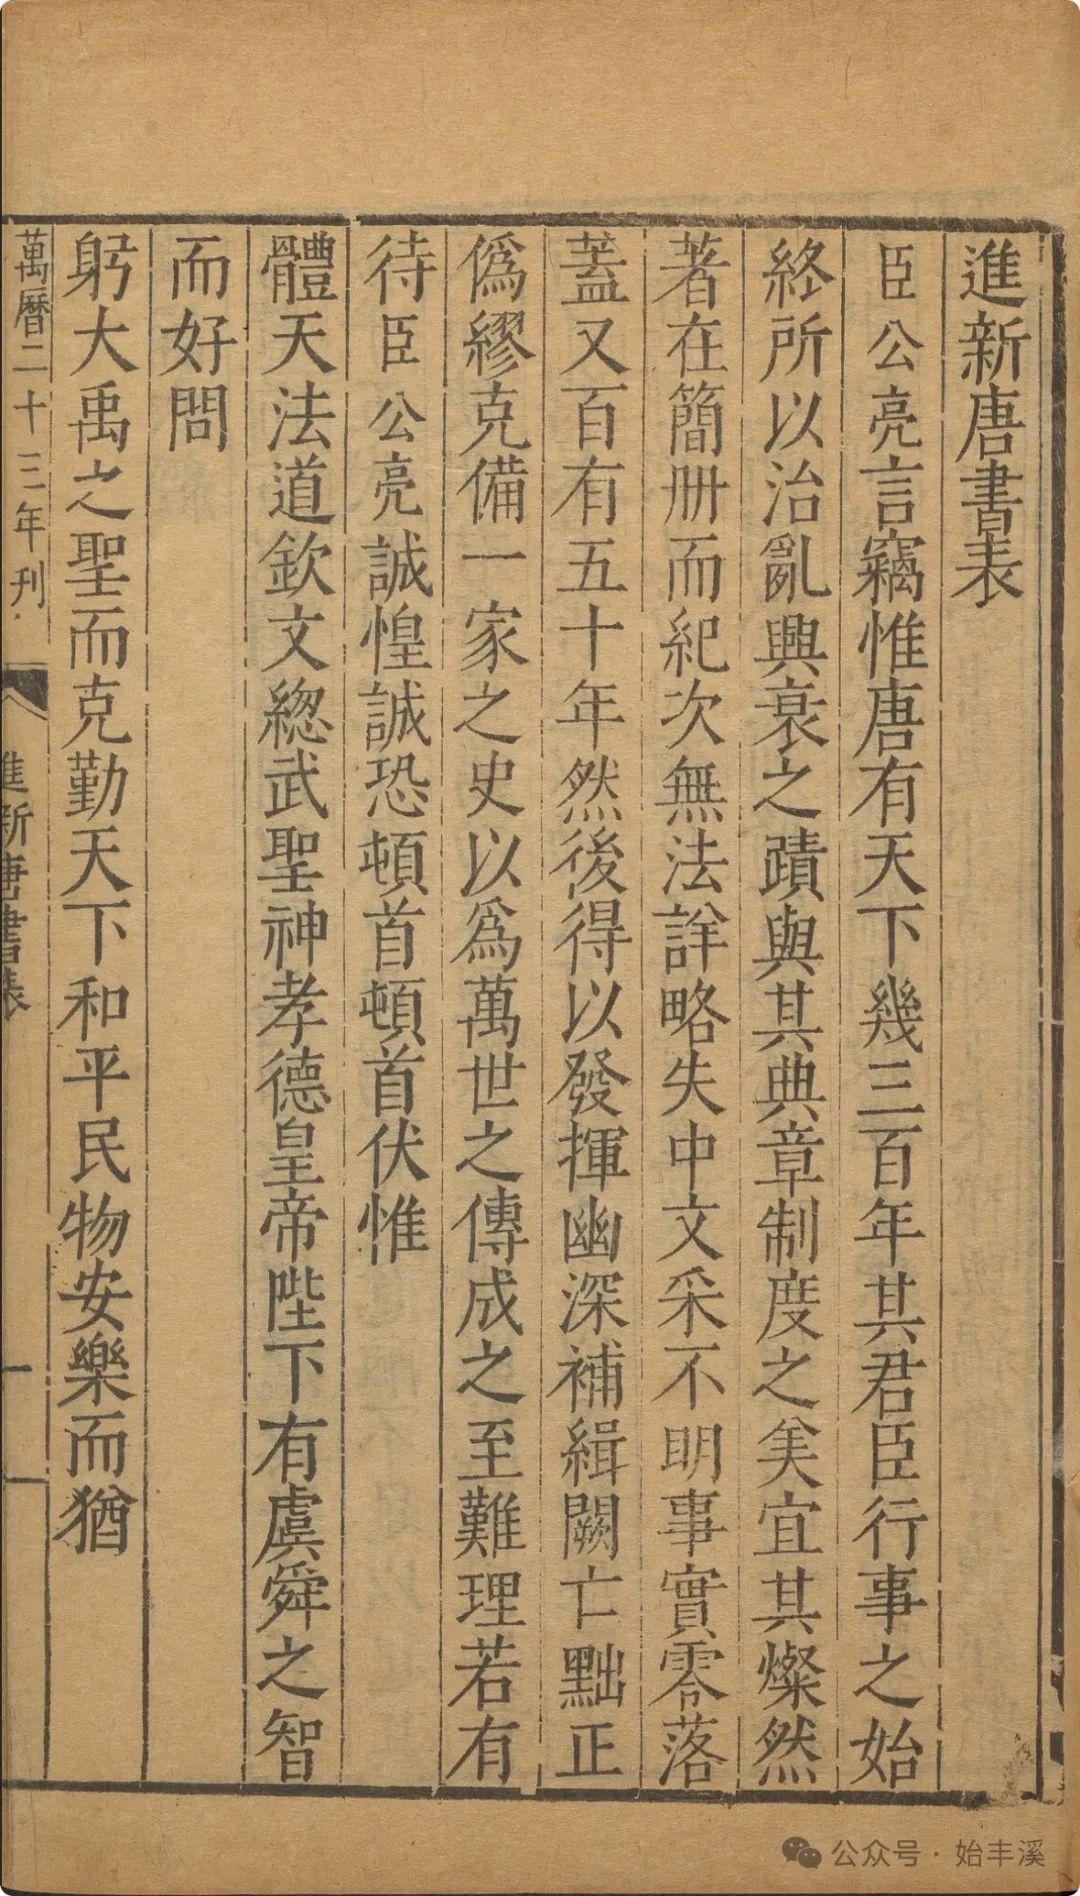 進新唐書表
臣公亮言竊惟唐有天下幾三百年其君臣行事之始
終所以治亂興衰之蹟與其典章制度之美宜其燦然
著在簡冊而紀次無法詳略失中文采不明事實零落
蓋又百有五十年然後得以發揮幽深補緝闕亡黜正
僞繆克備一家之史以爲萬世之傳成之至難理若有
待臣公亮誠惶誠恐頓首頓首伏惟
體天法道欽文緫武聖神孝德皇帝陛下有虞舜之智
而好問
躬大禹之聖而克勤天下和平民物安樂而猶
萬曆二十三年刊
進新唐書表
一
公众号·始丰溪